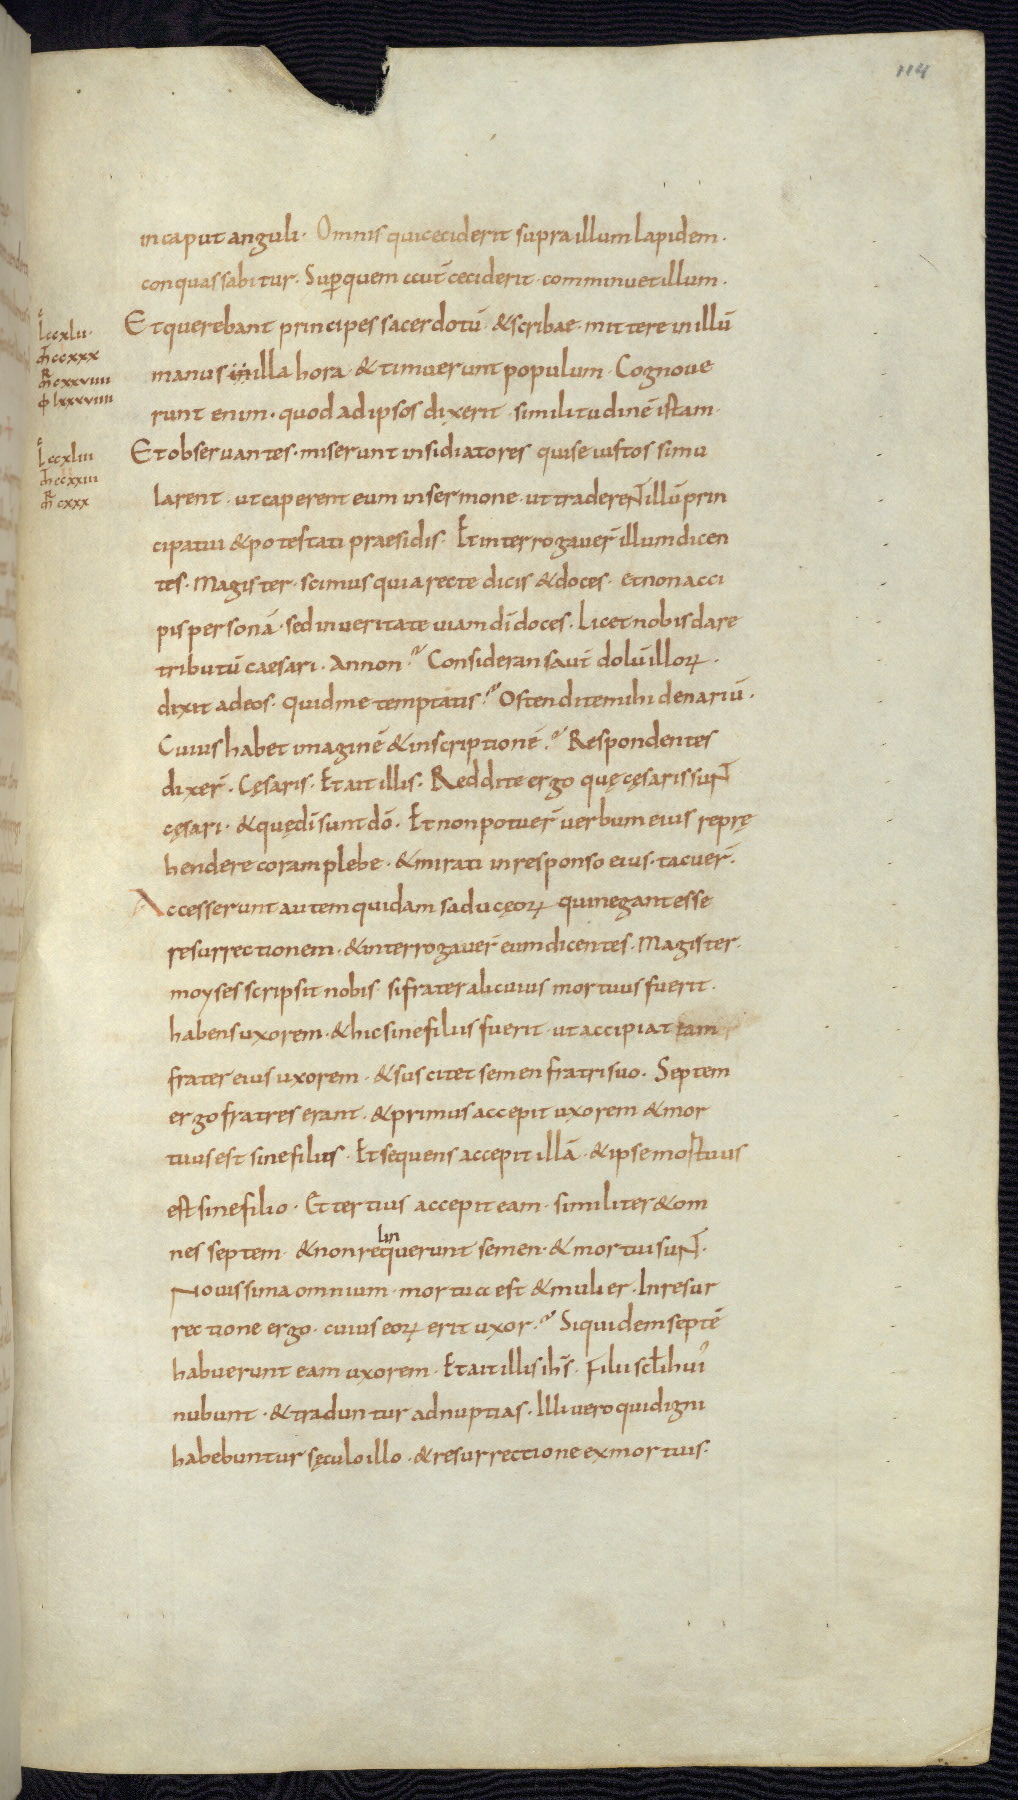 114
in caput anguli · Omnis qui ceciderit supra illum lapidem ·
conquassabitur · Sup̄ quem aut̄ ceciderit · comminuet illum ·
Et querebant principes sacerdotū · & scribae · mittere in illū
manus in illa hora · & timuerunt populum · Cognoue
runt enim · quod ad ipsos dixerit similitudinē istam ·
Et obseruantes · miserunt insidiatores qui se iustos simu
larent · ut caperent eum in sermone · ut traderent illū prin
cipatui & potestati praesidis · Et interrogauer̄ illum dicen
tes · Magister · scimus quia recte dicis & doces · et non acci
pis personā · sed in ueritate uiam dī doces · Licet nobis dare
tributū caesari · An non? Considerans aut̄ dolū illoꝝ ·
dixit ad eos · quid me temptatis? Ostendite mihi denariū ·
Cuius habet imaginē & inscriptionē? Respondentes
dixer̄ · Cęsaris · Et ait illis · Reddite ergo quę cęsaris sunt
cęsari · & quę dī sunt dō · Et non potuer̄ uerbum eius reprę
hendere coram plebe · & mirati in responso eius · tacuer̄ ·
Accesserunt autem quidam saducęoꝝ qui negant esse
resurrectionem · & interrogauer̄ eum dicentes · Magister ·
moyses scripsit nobis · si frater alicuius mortuus fuerit ·
habens uxorem · & hic sine filiis fuerit · ut accipiat eam
frater eius uxorem · & suscitet semen fratri suo · Septem
ergo fratres erant · & primus accepit uxorem & mor
tuus est sine filiis · Et sequens accepit illā · & ipse mortuus
est sine filio · Et tertius accepit eam · similiter & om
nes septem · & non relinquerunt semen · & mortui sunt ·
Nouissima omnium · mortua est & mulier · In resur
rectione ergo · cuius eoꝝ erit uxor? Siquidem septē
habuerunt eam uxorem · Et ait illis ih̄s · Filii sc̄li hui᾽
nubunt · & traduntur ad nuptias · Illi uero qui digni
habebuntur sęculo illo · & resurrectione ex mortuis ·
l ccxlii ·
m̄ ccxxx
m̄ cxxviiii
lxxxviiii
l ccxliii
m̄ ccxxiii
m̄ cxxx